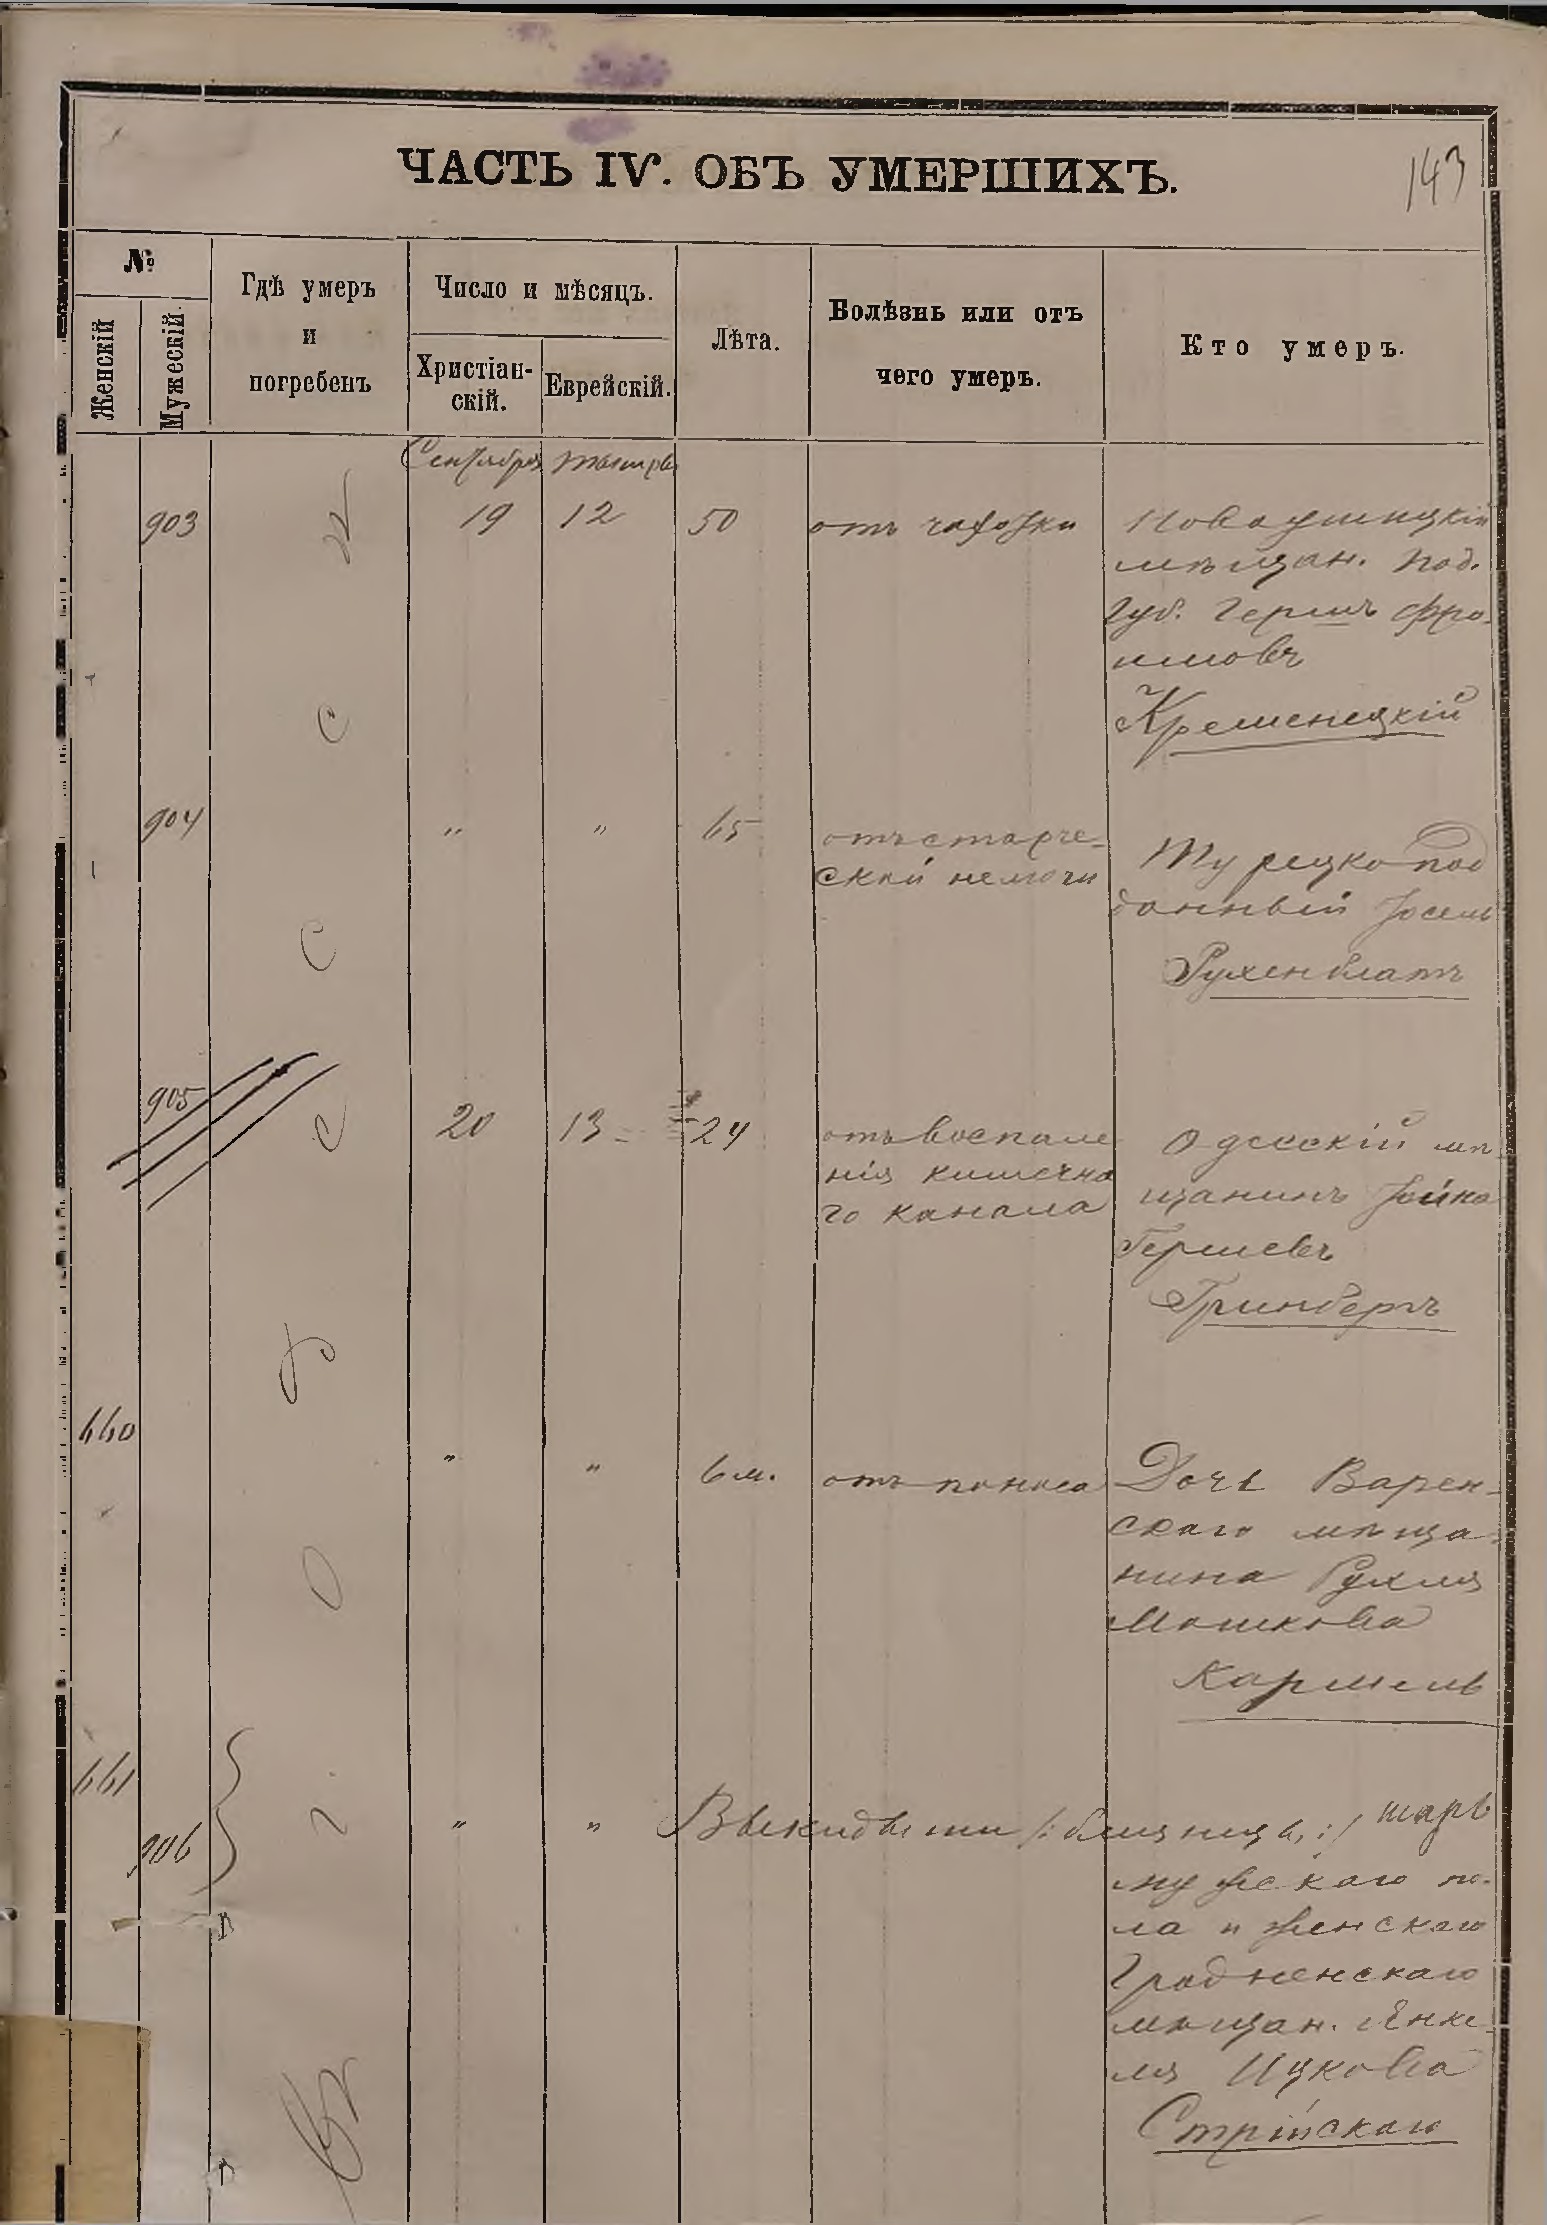 ЧАСТЬ IV. ОБЪ УМЕРШИХЪ.
143
№
Женскій
Мужескій.
Гдѣ умеръ
и
погребенъ
Число и мѣсяцъ.
Христіан-
скій.
Еврейскій.
Лѣта.
Болѣзнь или отъ
чего умеръ.
Кто умеръ.
Сентября
903
19
12
50
отъ чахотки
Новоушицкій
мѣщан. Под.
Губ. Гершъ Фро-
имовъ
Кременецкій
904
"
"
65
отъ старче-
ской немочи
Турецко под
данный Іосель
Рухенблатъ
905
20
13
24
отъ воспале
нія кишечна
го канала
Одесскій мѣ-
щанинъ Іойна
Гершевъ
Гринбергъ
660
"
"
6 м.
отъ поноса
Дочь Варен-
скаго мѣща-
нина Рухля
Мошкова
Кармель
661
906
"
"
Выкидыши /: близнецы :/
мужескаго по-
ла и женскаго
Гродненскаго
мѣщан. Янке-
ля Ицкова
Стрійскаго
Въ г. Одессѣ